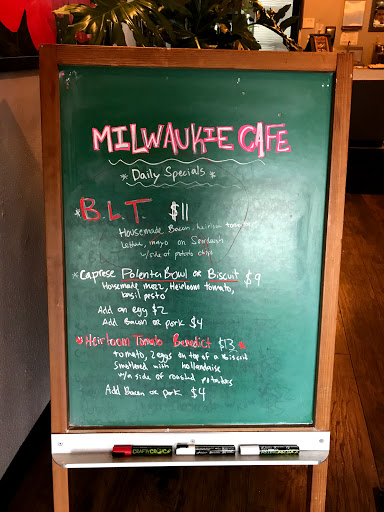 MILWAUKIE CAFE
* Daily Specials *
* B.L.T. $11
Housemade Bacon, heirloom tomatoes
Lettuce, mayo on
w/side of potato chips
* Caprese Polenta Bowl or Biscuit $9
Housemade mozz, Heirloom tomato,
basil pesto
Add an egg $2
Add Bacon or pork $4
* Heirloom Tomato Benedict $13 *
tomato, 2 eggs on top of a Biscuit
Smothered with hollandaise
w/a side of roasted potatoes
Add Bacon or pork $4